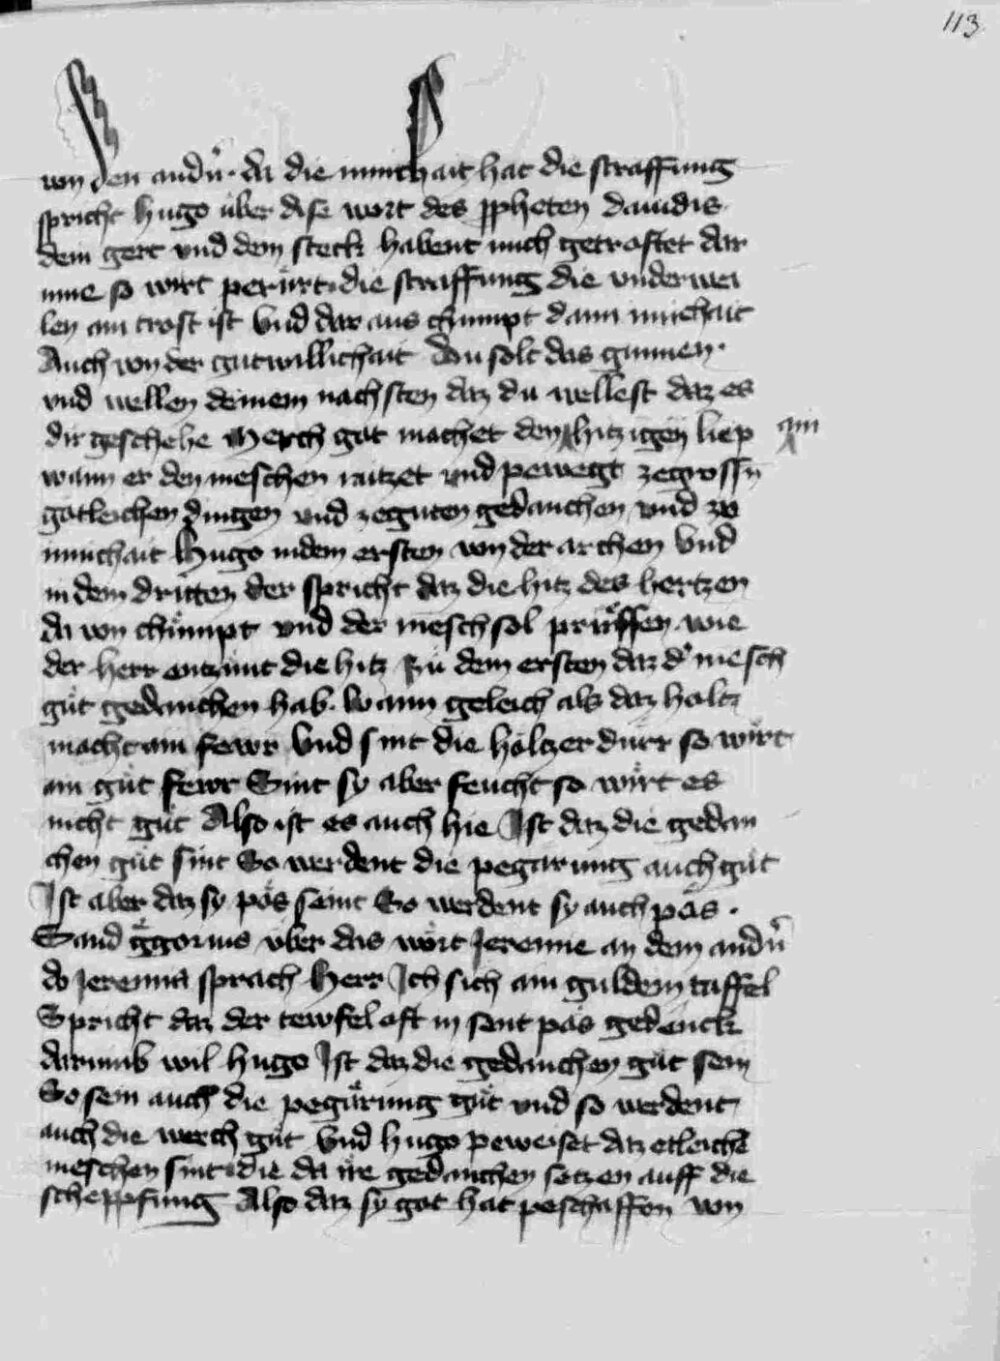 113
von den andn̄ · da die mīnichait hat die straffung
spricht hugo über dise wort des ꝓpheten dauidis
dein gert vnd dein steck habent mich getrostet dar
inne so wirt perürt die straffung die vnderwei
len ain trost ist Vnd dar aus chumpt dann minchait
Auch von der gutwillichait Du solt das gunnen ·
vnd wellen deinem nachsten daz du wellest daz es
dir geschehe Merch got machet den hitzigen liep
ain
wann er den meschen raitzet vnd pewegt ze grossn̄
gotleichen dingen vnd ze guten gedanchen vnd zu
minichait Hugo in dem ersten von der archen Vnd
in dem dritten der spricht daz die hitz des hertzen
da von chůmpt vnd der mesch sol prüffen wie
der herr entzünt die hitz Zu dem ersten daz d' mesch
gůt gedanchen hab · Wann geleich als daz holtz
macht ain fewr Vnd sint die holtzer dürr so wirt
ain gůt fewr Sint sy aber feucht so wirt es
nicht gůt Also ist es auch hie Ist daz die gedan
chen gůt sint So werdent die pegirung auch gůt
Ist aber daz sy pös seint So werdent sy auch pös ·
Sand ggorius über das wort Jeremie an dem andn̄
do Jeremia sprach Herr Ich sich ain guldem taffel
Spricht daz der tewfel oft in sent pös gedenck
darumb wil hugo Ist daz die gedanchen gůt sein
So sein auch die pegirung gůt vnd so werdent
auch die werch gůt Vnd hugo peweiset daz etleiche
meschen sint die da ire gedanchen setzen auff die
scheppfung Also daz sy got hat peschaffen von